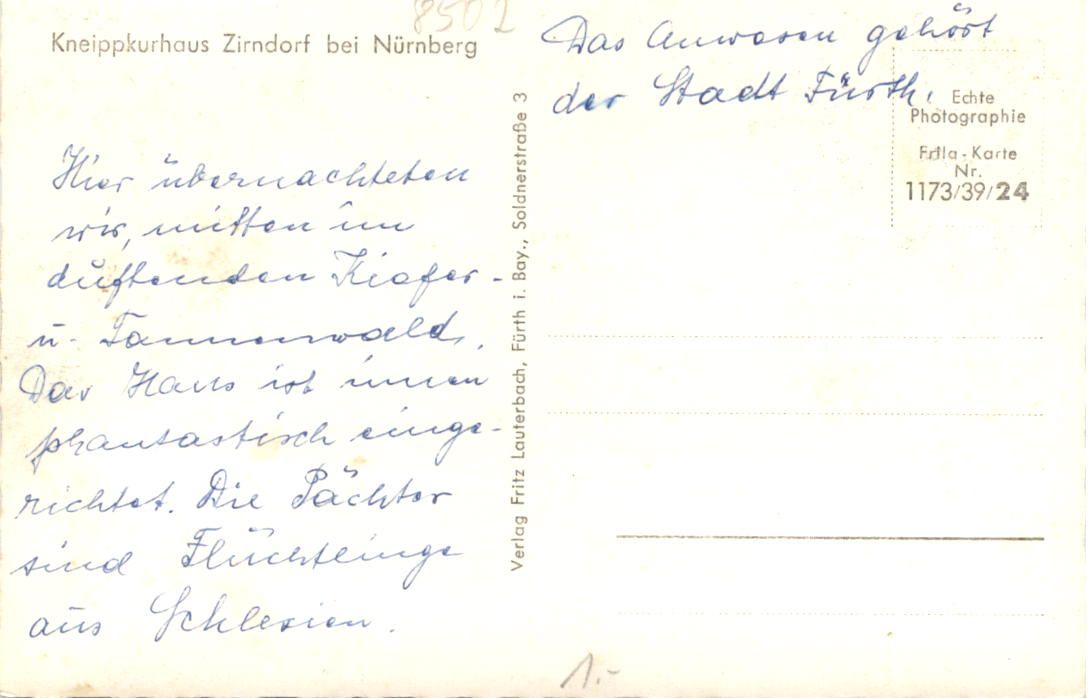 8502
Kneippkurhaus Zirndorf bei Nürnberg
Hier übernachteten
wir, mitten im
duftenden Kiefer-
u. Tannenwald.
Das Haus ist innen
phantastisch einge-
richtet. Die Pächter
sind Flüchtlinge
aus Schlesien.
Verlag Fritz Lauterbach, Fürth i. Bay., Soldnerstraße 3
Das Anwesen gehört
der Stadt Fürth.
Echte
Photographie
Frila-Karte
Nr.
1173/39/24
1.-